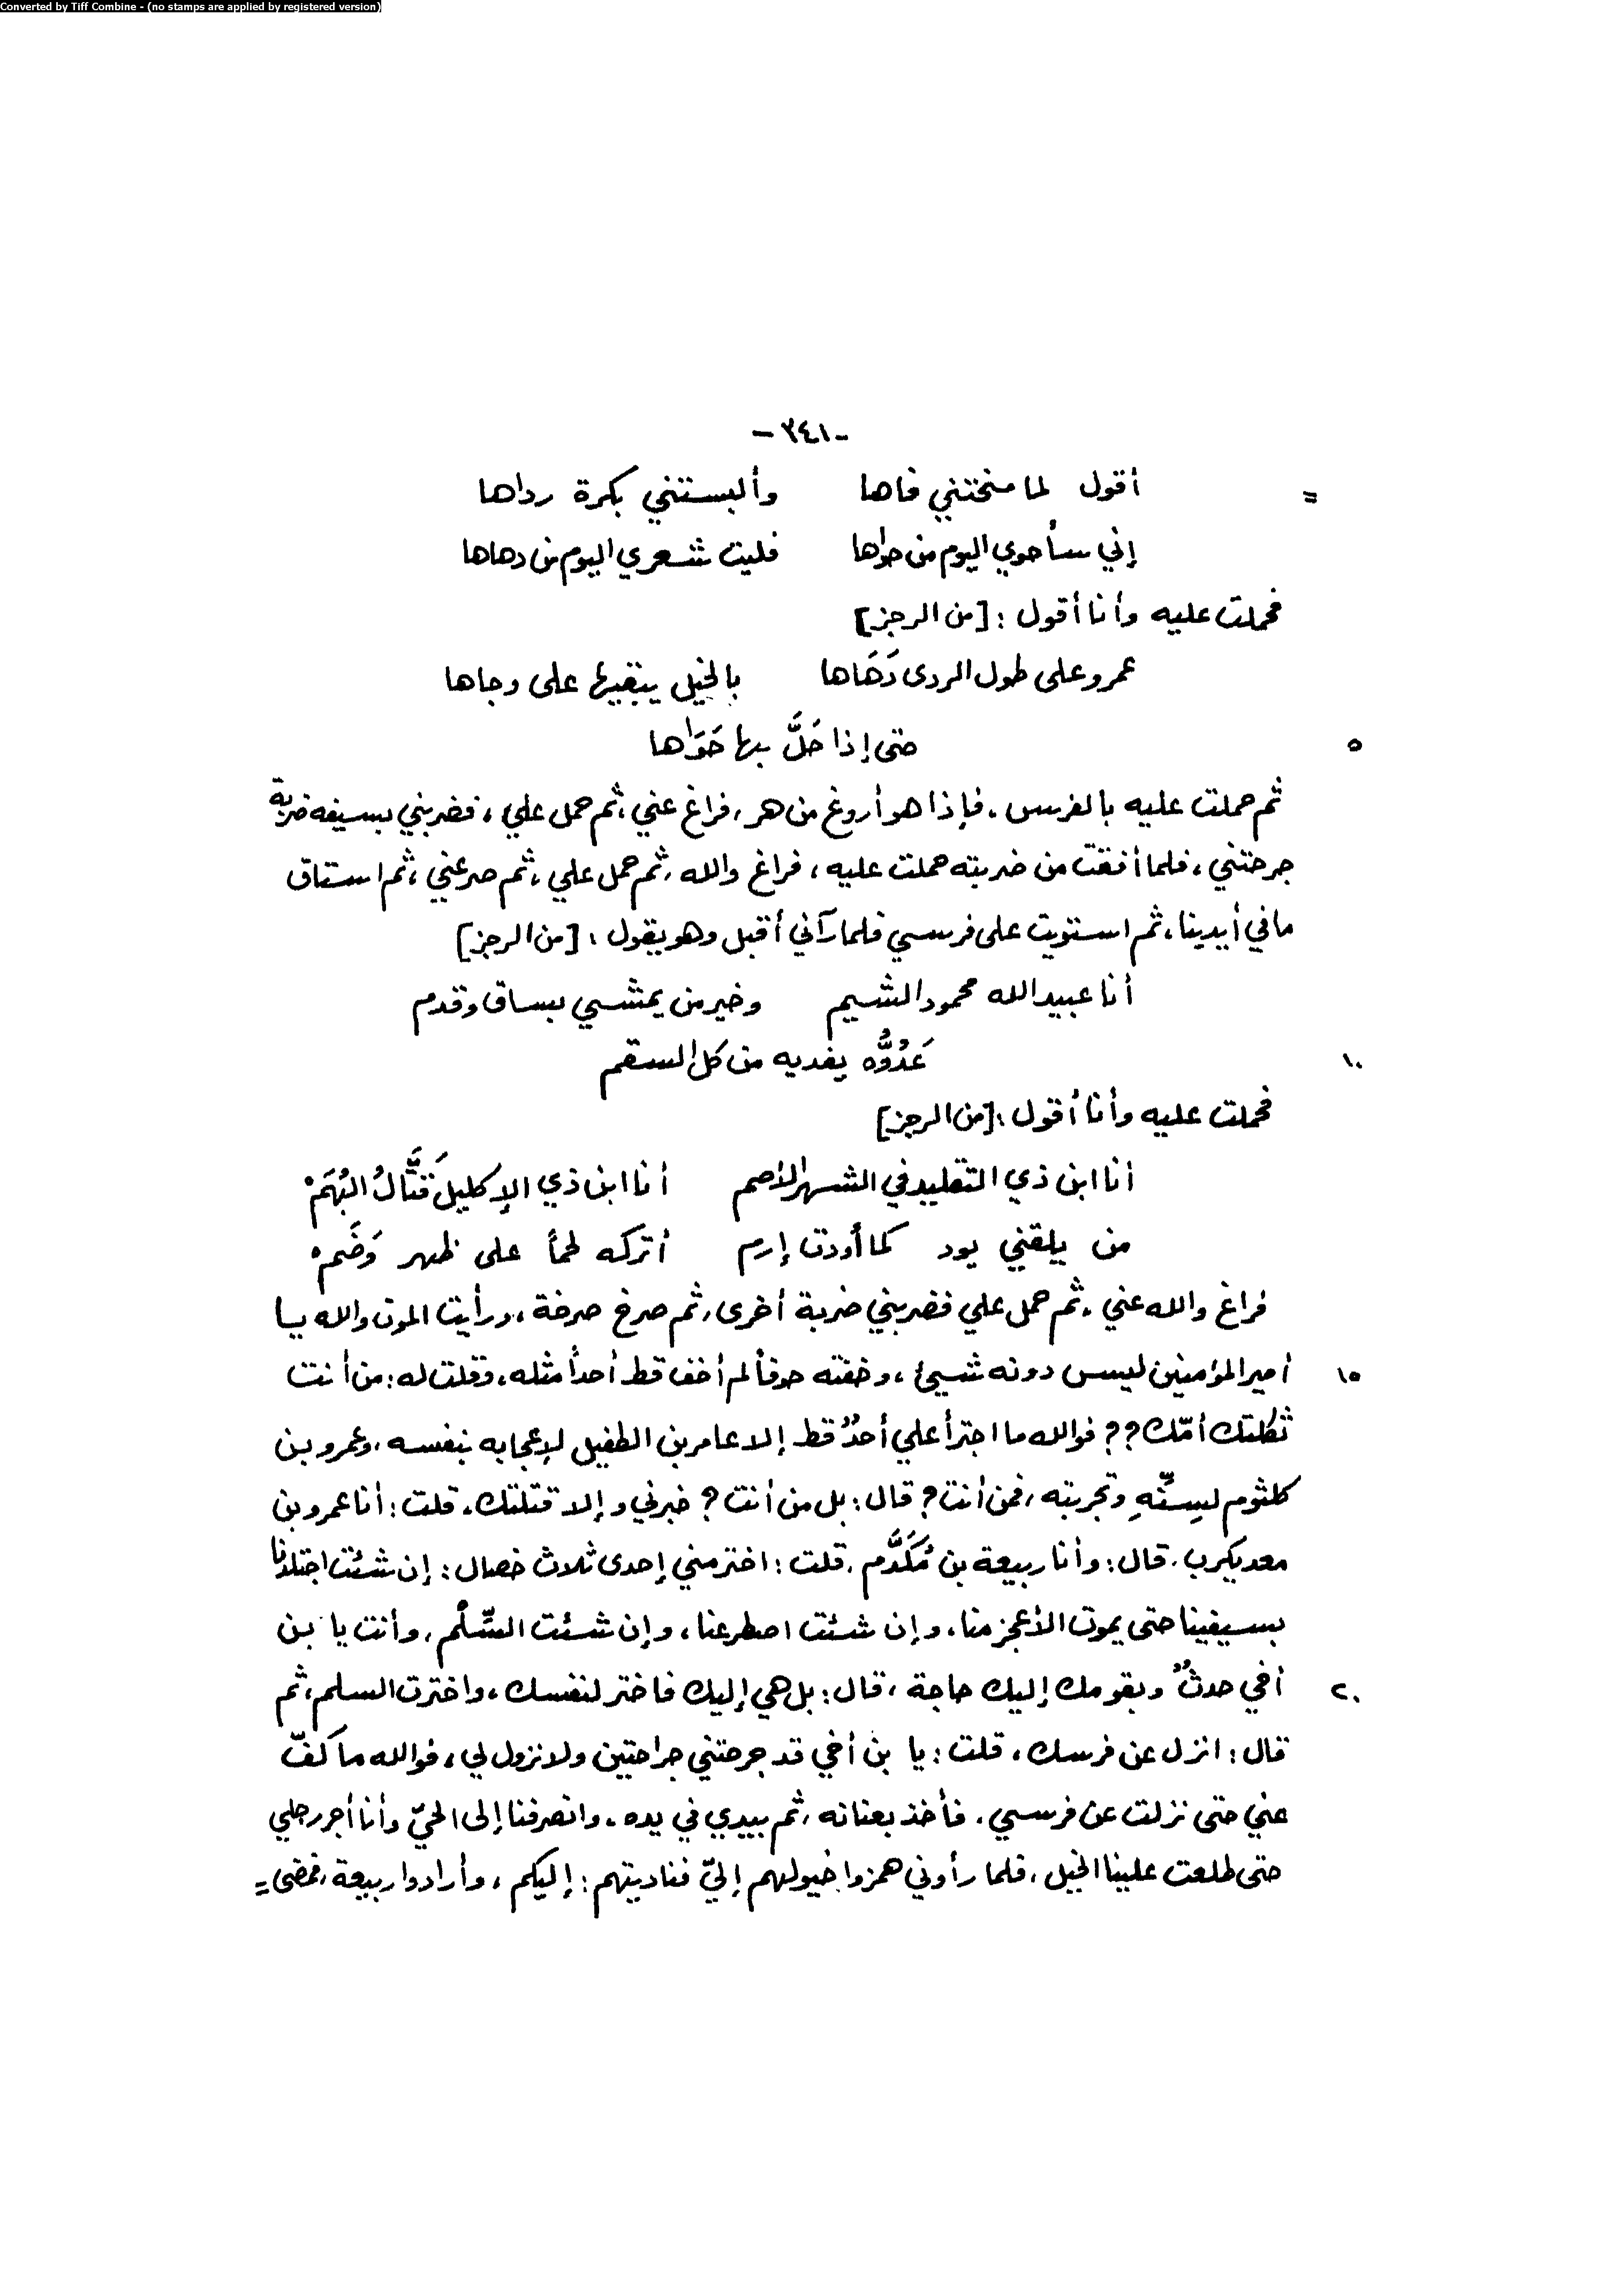 Converted by Tiff Combine - (no stamps are applied by registered version)
-٣٤١-
= أقول لما منحتني فاها وألبستني بكرة رداها
إني سأحوي اليوم من حواها فليت شعري اليوم من دهاها
فحملت عليه وأنا أقول : [من الرجز]
عمرو على طول الردى دَهَاها بالخيل يبقيها على وجاها
٥ حتى إذا حَلَّ بها حَوَاها
ثم حملت عليه بالفرس، فإذا هو أروغ من هر، فراغ عني، ثم حمل علي، فضربني بسيفه ضربة
جرحتني، فلما أفقت من ضربته حملت عليه، فراغ والله، ثم حمل علي، ثم صرعني، ثم استاق
ما في أيدينا، ثم استويت على فرسي فلما رآني أقبل وهو يقول : [من الرجز]
أنا عبيد الله محمود الشيم وخير من يمشي بساق وقدم
١٠ عَدُوُّه يفديه من كل السقم
فحملت عليه وأنا أقول : [من الرجز]
أنا ابن ذي التقليد في الشهر الأصم أنا ابن ذي الإكليل قَتَّالُ البُهَمْ
من يلقني يود كما أودت إرم أتركه لحماً على ظهر وَضَمْ
فراغ والله عني، ثم حمل علي فضربني ضربة أخرى، ثم صرخ صرخة، ورأيت الموت والله يا
١٥ أمير المؤمنين ليس دونه شيئ، وخفته خوفاً لم أخف قط أحداً مثله، وقلت له: من أنت
ثكلتك أمّك؟؟ فوالله ما اجترأ علي أحدٌ قط إلا عامر بن الطفيل لإعجابه بنفسه، وعمرو بن
كلثوم لِسِنِّهِ وتجربته، فمن أنت؟ قال: بل من أنت؟ خبرني وإلا قتلتك، قلت: أنا عمرو بن
معد يكرب، قال: وأنا ربيعة بن مُكَدَّم، قلت: اختر مني إحدى ثلاث خصال: إن شئت اجتلدنا
بسيفينا حتى يموت الأعجز منا، وإن شئت اصطرعنا، وإن شئت السِّلْم، وأنت يا بن
٢٠ أخي حدثٌ وبقومك إليك حاجة، قال: بل هي إليك فاختر لنفسك، واخترت السلم، ثم
قال: انزل عن فرسك، قلت: يا بن أخي قد جرحتني جراحتين ولا نزول لي، فوالله ما كفّ
عني حتى نزلت عن فرسي، فأخذ بعنانه، ثم بيدي في يده، وانصرفنا إلى الحيّ وأنا أجر رجلي
حتى طلعت علينا الخيل، فلما رأوني همزوا خيولهم إليّ فناديتهم: إليكم، وأرادوا ربيعة، فمضى =